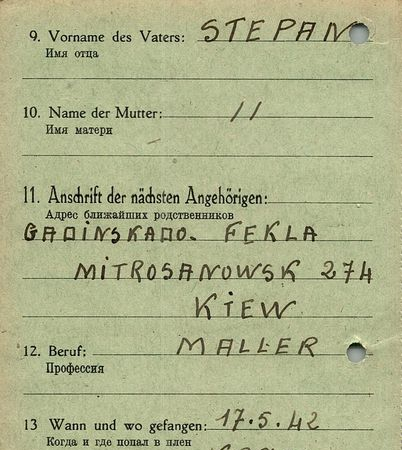 9. Vorname des Vaters: STEPAN
Имя отца
10. Name der Mutter: //
Имя матери
11. Anschrift der nächsten Angehörigen:
Адрес ближайших родственников
FEKLA
MITROSANOWSK 274
KIEW
12. Beruf: MALLER
Профессия
13 Wann und wo gefangen: 17.5.42
Когда и где попал в плен